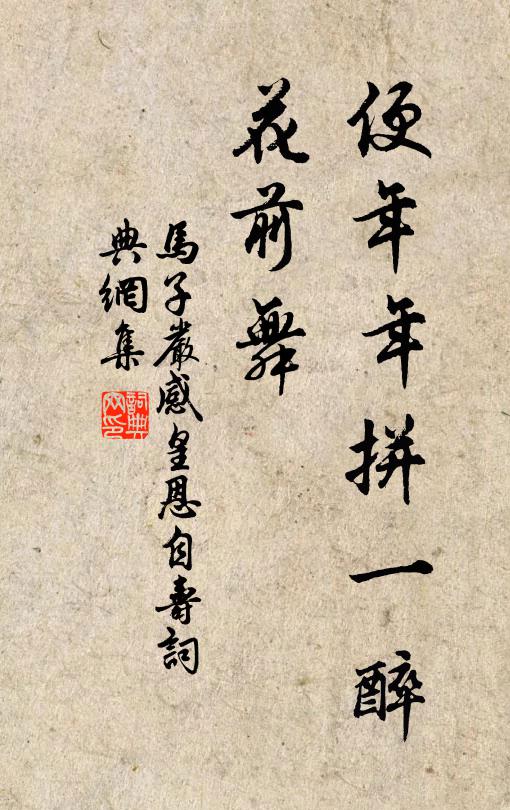 便年年拼一醉
花前舞
馬子嚴感皇恩自壽詞
典網集
詞典网印